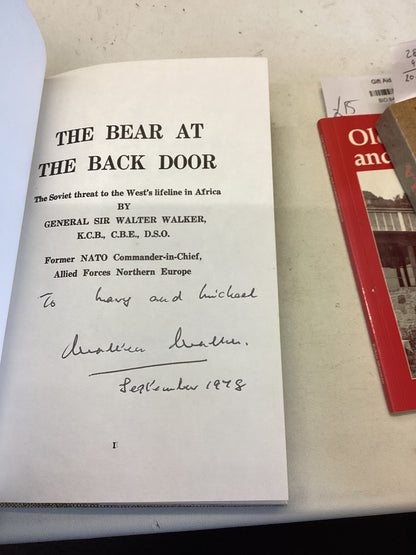 THE BEAR AT
THE BACK DOOR
The Soviet threat to the West's lifeline in Africa
BY
GENERAL SIR WALTER WALKER,
K.C.B., C.B.E., D.S.O.
Former NATO Commander-in-Chief,
Allied Forces Northern Europe
To Mary and Michael
Walter Walker.
September 1978
I
Gift Aid
£15
Ol
and